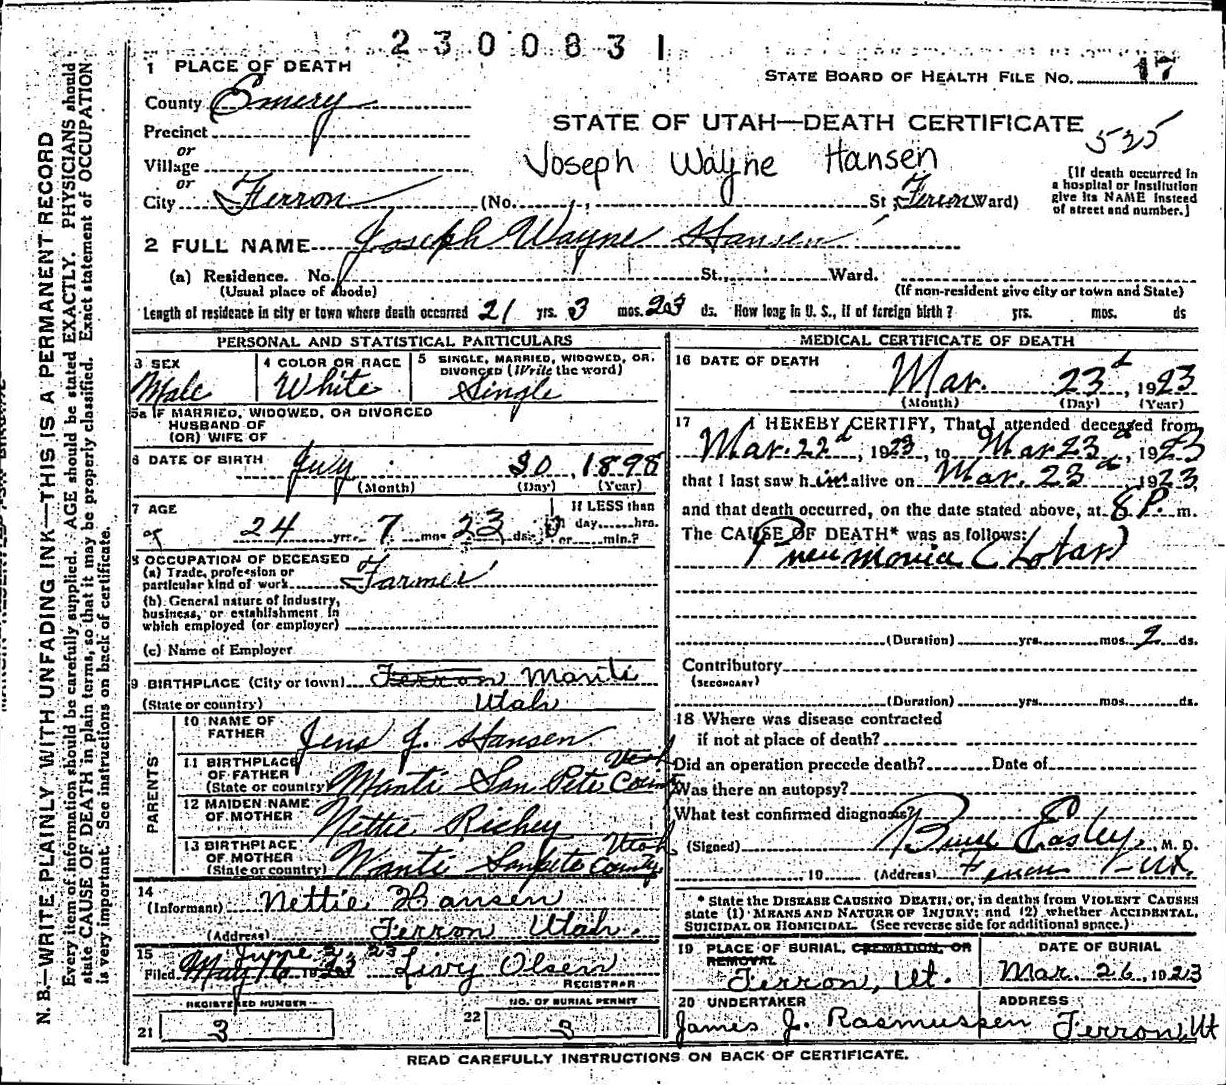 2300831
1 PLACE OF DEATH
STATE BOARD OF HEALTH FILE NO. 17
County Emery
STATE OF UTAH—DEATH CERTIFICATE
525
Precinct
or
Village
Joseph Wayne Hansen
or
City Ferron (No. , St Ferron Ward)
[If death occurred in
a hospital or institution
give its NAME instead
of street and number.]
2 FULL NAME Joseph Wayne Hansen
(a) Residence. No. St. Ward.
(Usual place of abode) (If non-resident give city or town and State)
Length of residence in city or town where death occurred 21 yrs. 3 mos. 23 ds. How long in U. S., if of foreign birth? yrs. mos. ds
PERSONAL AND STATISTICAL PARTICULARS
3 SEX
Male
4 COLOR OR RACE
White
5 SINGLE, MARRIED, WIDOWED, OR,
DIVORCED (Write the word)
Single
5a IF MARRIED, WIDOWED, OR DIVORCED
HUSBAND OF
(OR) WIFE OF
6 DATE OF BIRTH
July 30, 1898
(Month) (Day) (Year)
7 AGE
24 yrs. 7 mos. 23 ds.
If LESS than
1 day, hrs.
or min.?
8 OCCUPATION OF DECEASED
(a) Trade, profession or
particular kind of work Farmer
(b) General nature of industry,
business, or establishment in
which employed (or employer)
(c) Name of Employer
9 BIRTHPLACE (City or town) Ferron Manti
(State or country) Utah
PARENTS
10 NAME OF
FATHER Jens J. Hansen
11 BIRTHPLACE
OF FATHER
(State or country) Manti San Pete County Utah
12 MAIDEN NAME
OF MOTHER Nettie Richey
13 BIRTHPLACE
OF MOTHER
(State or country) Manti Sanpete County Utah
14
(Informant) Nettie Hansen
(Address) Ferron Utah.
15
June 2 23
Filed May 16 1923 Livy Olsen
REGISTRAR
REGISTERED NUMBER
21 3
NO. OF BURIAL PERMIT
22 3
MEDICAL CERTIFICATE OF DEATH
16 DATE OF DEATH
Mar. 23d, 1923
(Month) (Day) (Year)
17 I HEREBY CERTIFY, That I attended deceased from
Mar. 22d, 1923, to Mar 23d, 1923
that I last saw him alive on Mar. 23d 1923,
and that death occurred, on the date stated above, at 8 P. m.
The CAUSE OF DEATH* was as follows:
Pneumonia (Lobar)
(Duration) yrs. mos. 9 ds.
Contributory
(SECONDARY)
(Duration) yrs. mos. ds.
18 Where was disease contracted
if not at place of death?
Did an operation precede death? Date of
Was there an autopsy?
What test confirmed diagnosis?
(Signed) Bruce Easley, M. D.
, 19 (Address) Ferron Ut.
* State the DISEASE CAUSING DEATH, or, in deaths from VIOLENT CAUSES
state (1) MEANS AND NATURE OF INJURY; and (2) whether ACCIDENTAL,
SUICIDAL or HOMICIDAL. (See reverse side for additional space.)
19 PLACE OF BURIAL, CREMATION, OR
REMOVAL
Ferron, Ut.
DATE OF BURIAL
Mar. 26, 1923
20 UNDERTAKER
James J. Rasmussen
ADDRESS
Ferron, Ut
READ CAREFULLY INSTRUCTIONS ON BACK OF CERTIFICATE.
N. B.—WRITE PLAINLY WITH UNFADING INK—THIS IS A PERMANENT RECORD
Every item of information should be carefully supplied. AGE should be stated EXACTLY. PHYSICIANS should
state CAUSE OF DEATH in plain terms, so that it may be properly classified. Exact statement of OCCUPATION
is very important. See instructions on back of certificate.